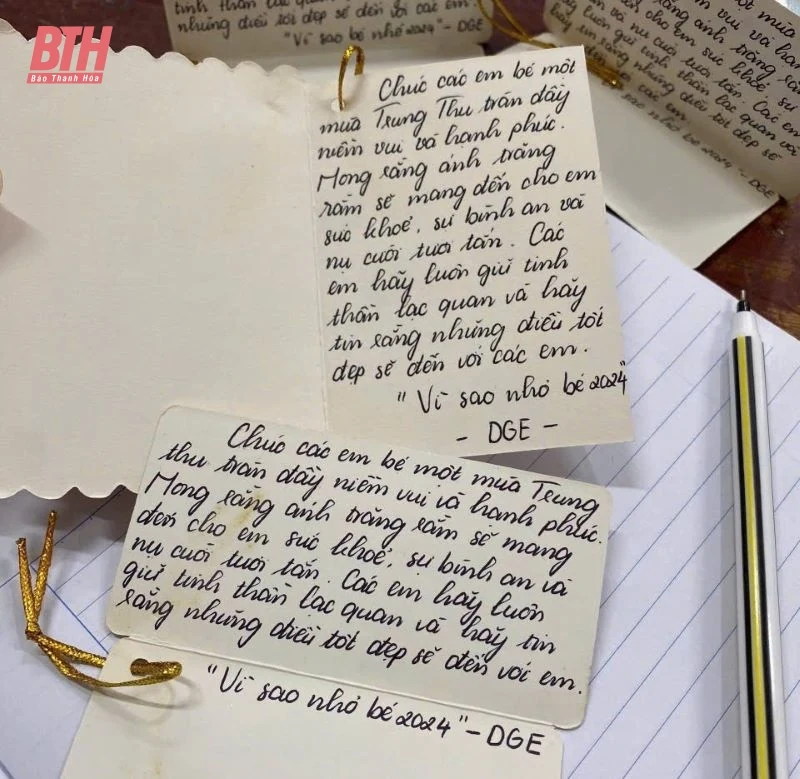 BTH
Báo Thanh Hóa
tinh thần lạc quan và hãy
những điều tốt đẹp sẽ đến với các em.
"Vì sao nhỏ bé 2024" - DGE
Chúc các em bé một
mùa Trung Thu tràn đầy
niềm vui và hạnh phúc.
Mong rằng ánh trăng
rằm sẽ mang đến cho em
sức khoẻ, sự bình an và
nụ cười tươi tắn. Các
em hãy luôn giữ tinh
thần lạc quan và hãy
tin rằng những điều tốt
đẹp sẽ đến với các em.
"Vì sao nhỏ bé 2024"
- DGE -
Chúc các em bé một mùa Trung
thu tràn đầy niềm vui và hạnh phúc.
Mong rằng ánh trăng rằm sẽ mang
đến cho em sức khoẻ, sự bình an và
nụ cười tươi tắn. Các em hãy luôn
giữ tinh thần lạc quan và hãy tin
rằng những điều tốt đẹp sẽ đến với em.
"Vì sao nhỏ bé 2024" - DGE
một mùa
vui và hạnh
ánh trăng
cho em sức khoẻ, sự
và nụ cười tươi tắn. Các em
hãy luôn giữ tinh thần lạc quan và
tin rằng những điều tốt đẹp sẽ
đến với các em.
nhỏ bé 2024" - DGE